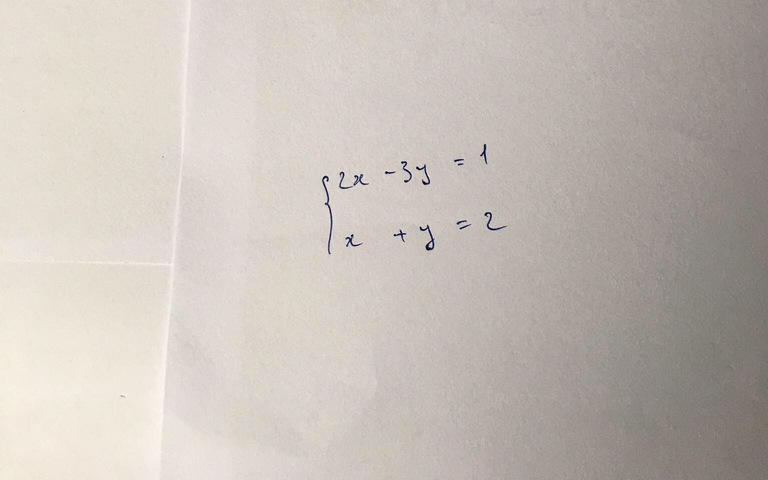 2x - 3y = 1
x + y = 2